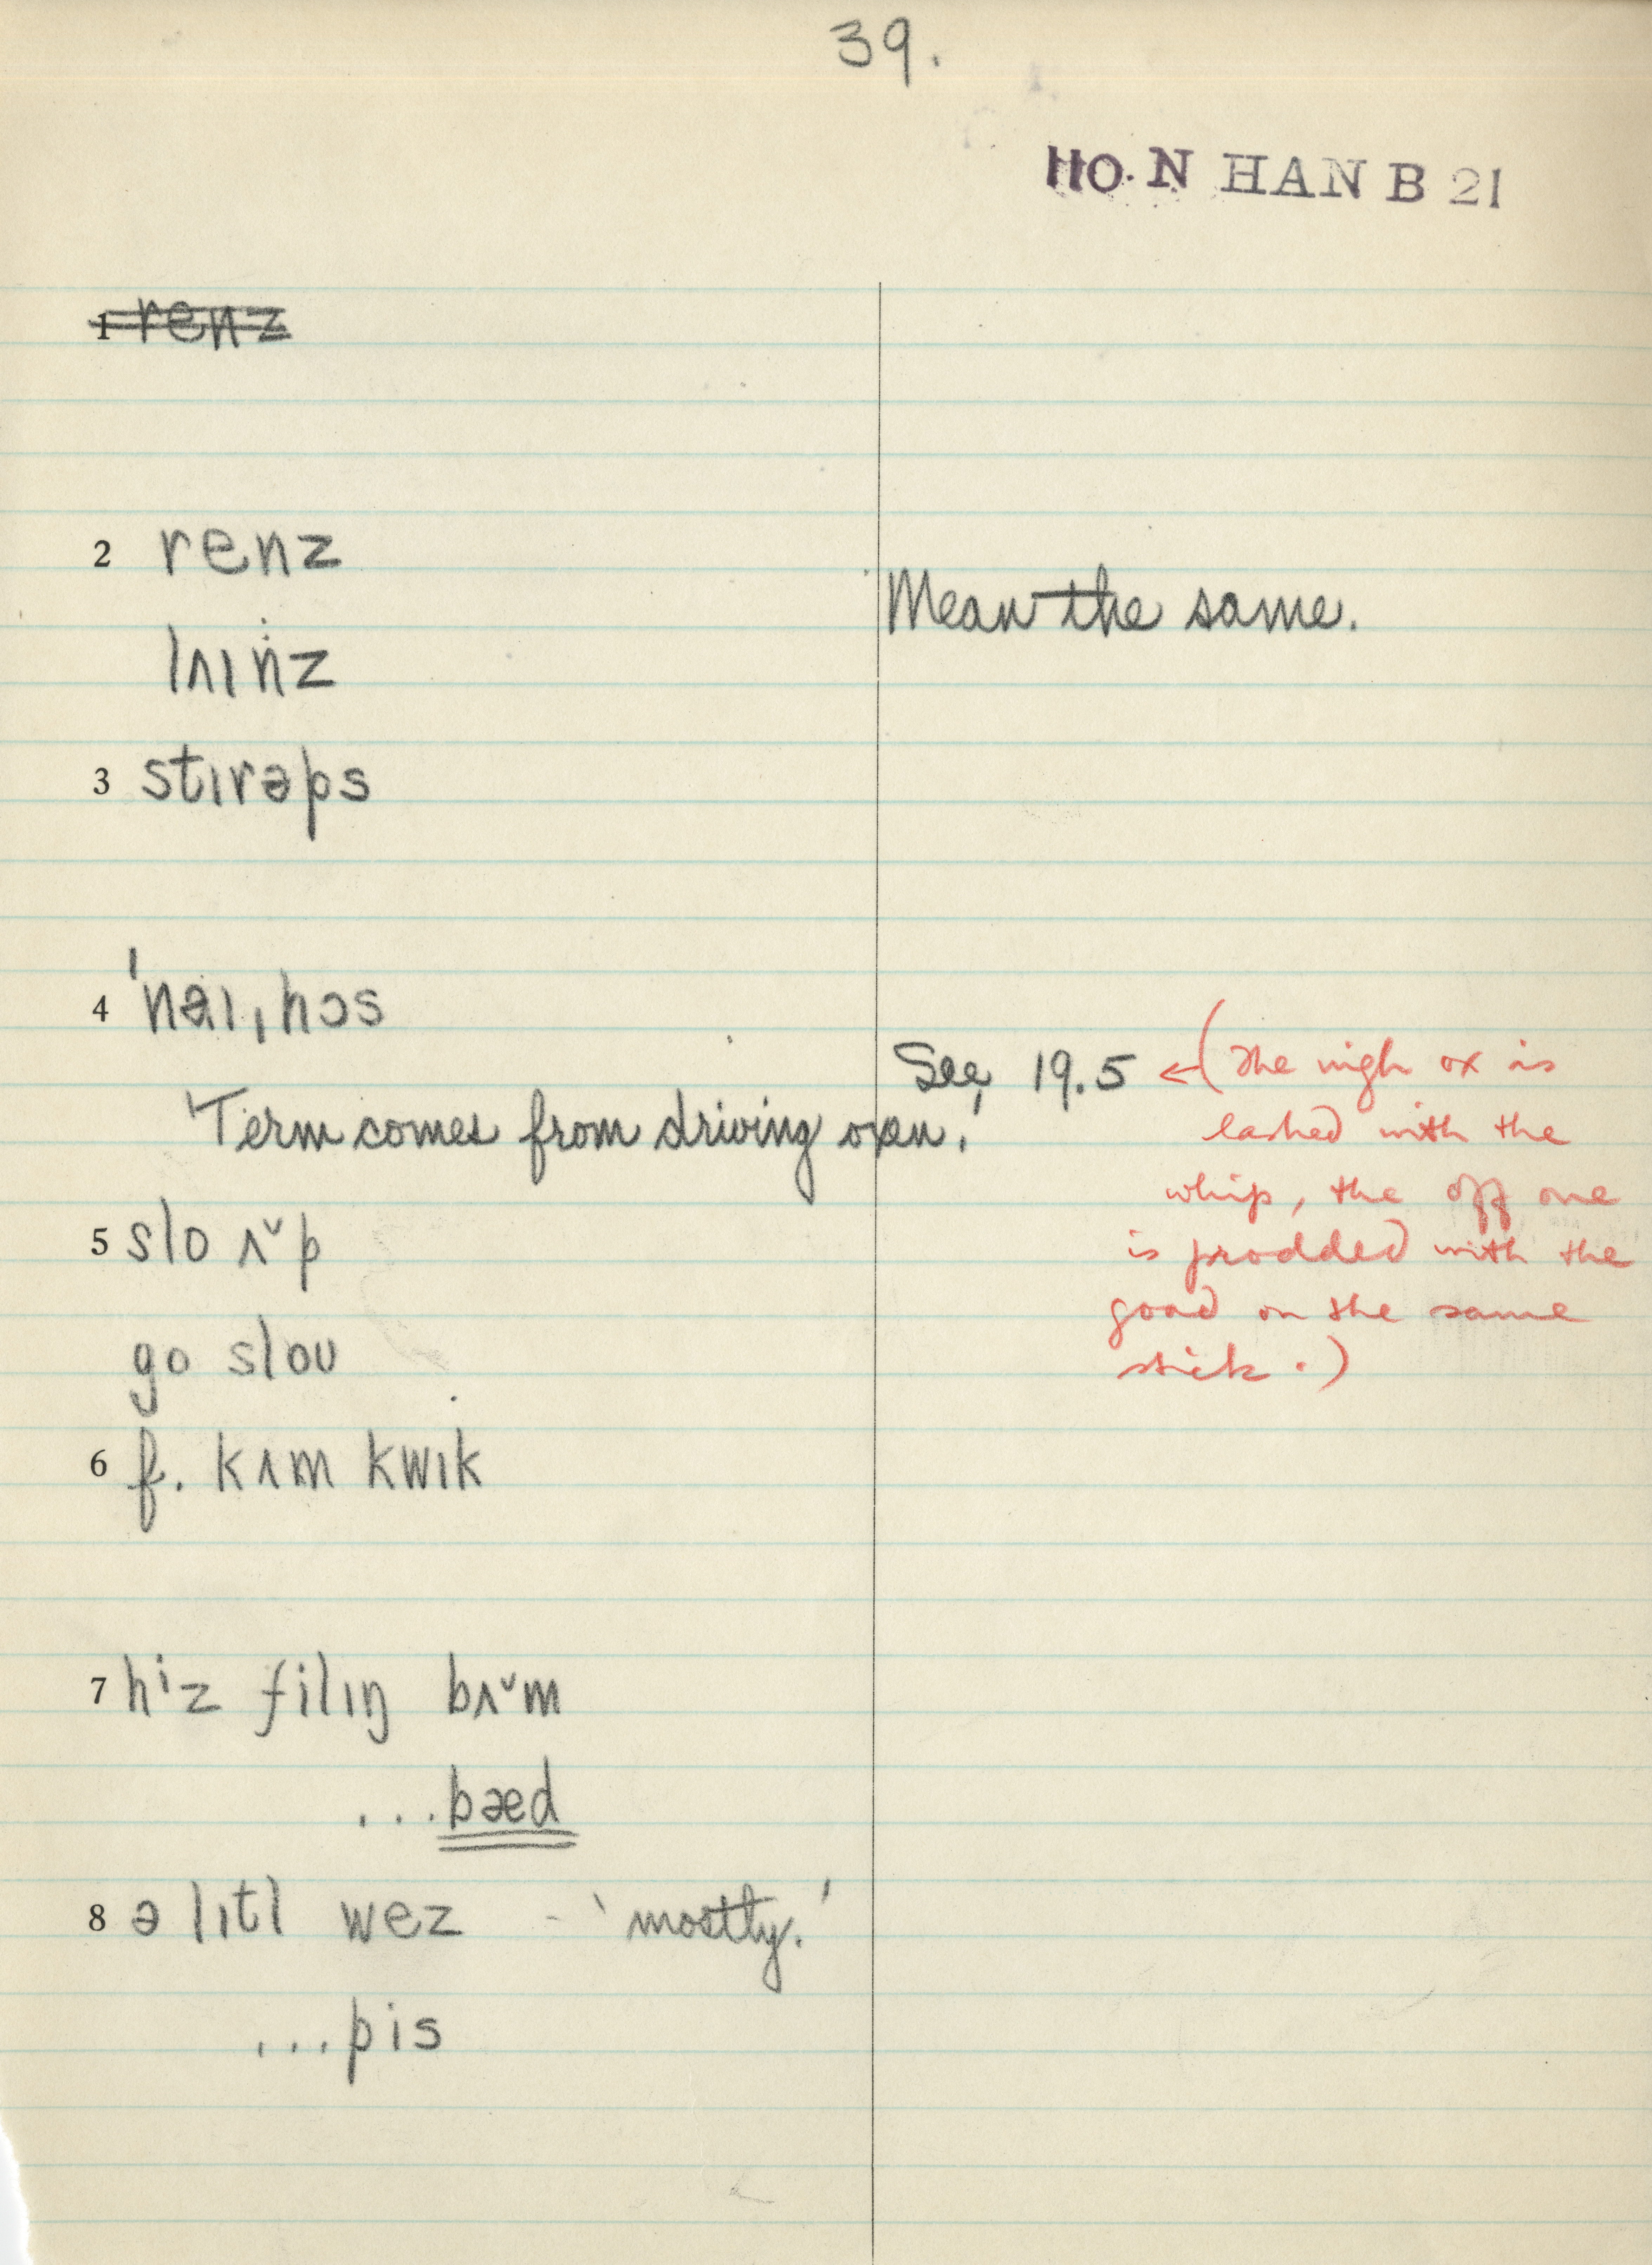 39.
110. N HAN B 21
1 renz
2 renz
Mean the same.
lʌɪnz
3 stɪrəps
4 ˈnaɪˌhɔs
See 19.5 ← (The nigh ox is
'Term comes from driving oxen.'
lashed with the
whip, the off one
5 slo ʌˇp
is prodded with the
goad on the same
go sloʊ
stick.)
6 f. kʌm kwɪk
7 hⁱz filɪŋ bʌˇm
...bæd
8 ə lɪtl wez - 'mostly.'
...pis